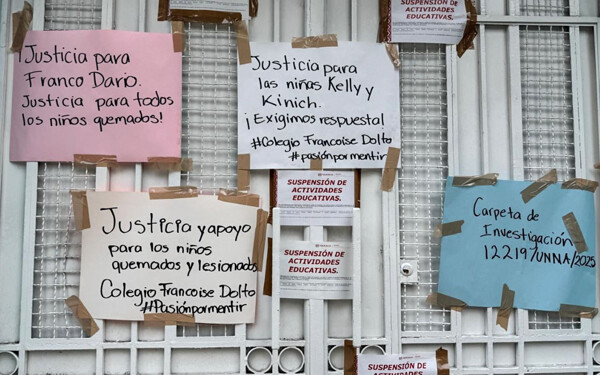 SUSPENSIÓN DE
ACTIVIDADES
EDUCATIVAS.
¡Justicia para
Franco Dario.
Justicia para todos
los niños quemados!
Justicia para
las niñas Kelly y
Kinich.
¡Exigimos respuesta!
#Colegio Francoise Dolto
#pasiónpormentir
SUSPENSIÓN DE
ACTIVIDADES
EDUCATIVAS.
Carpeta de
Investigación
12219/UNNA/2025
Justicia y apoyo
para los niños
quemados y lesionados
Colegio Francoise Dolto
#Pasiónpormentir
SUSPENSIÓN DE
ACTIVIDADES
EDUCATIVAS.
SUSPENSIÓN DE
ACTIVIDADES